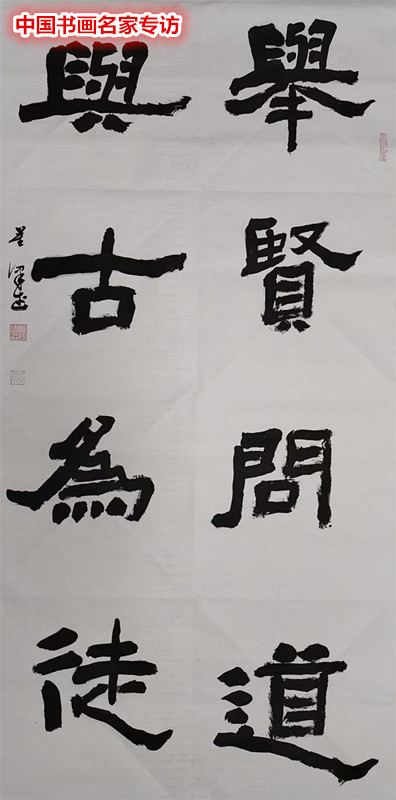 中国书画名家专访
舉賢問道
與古為徒